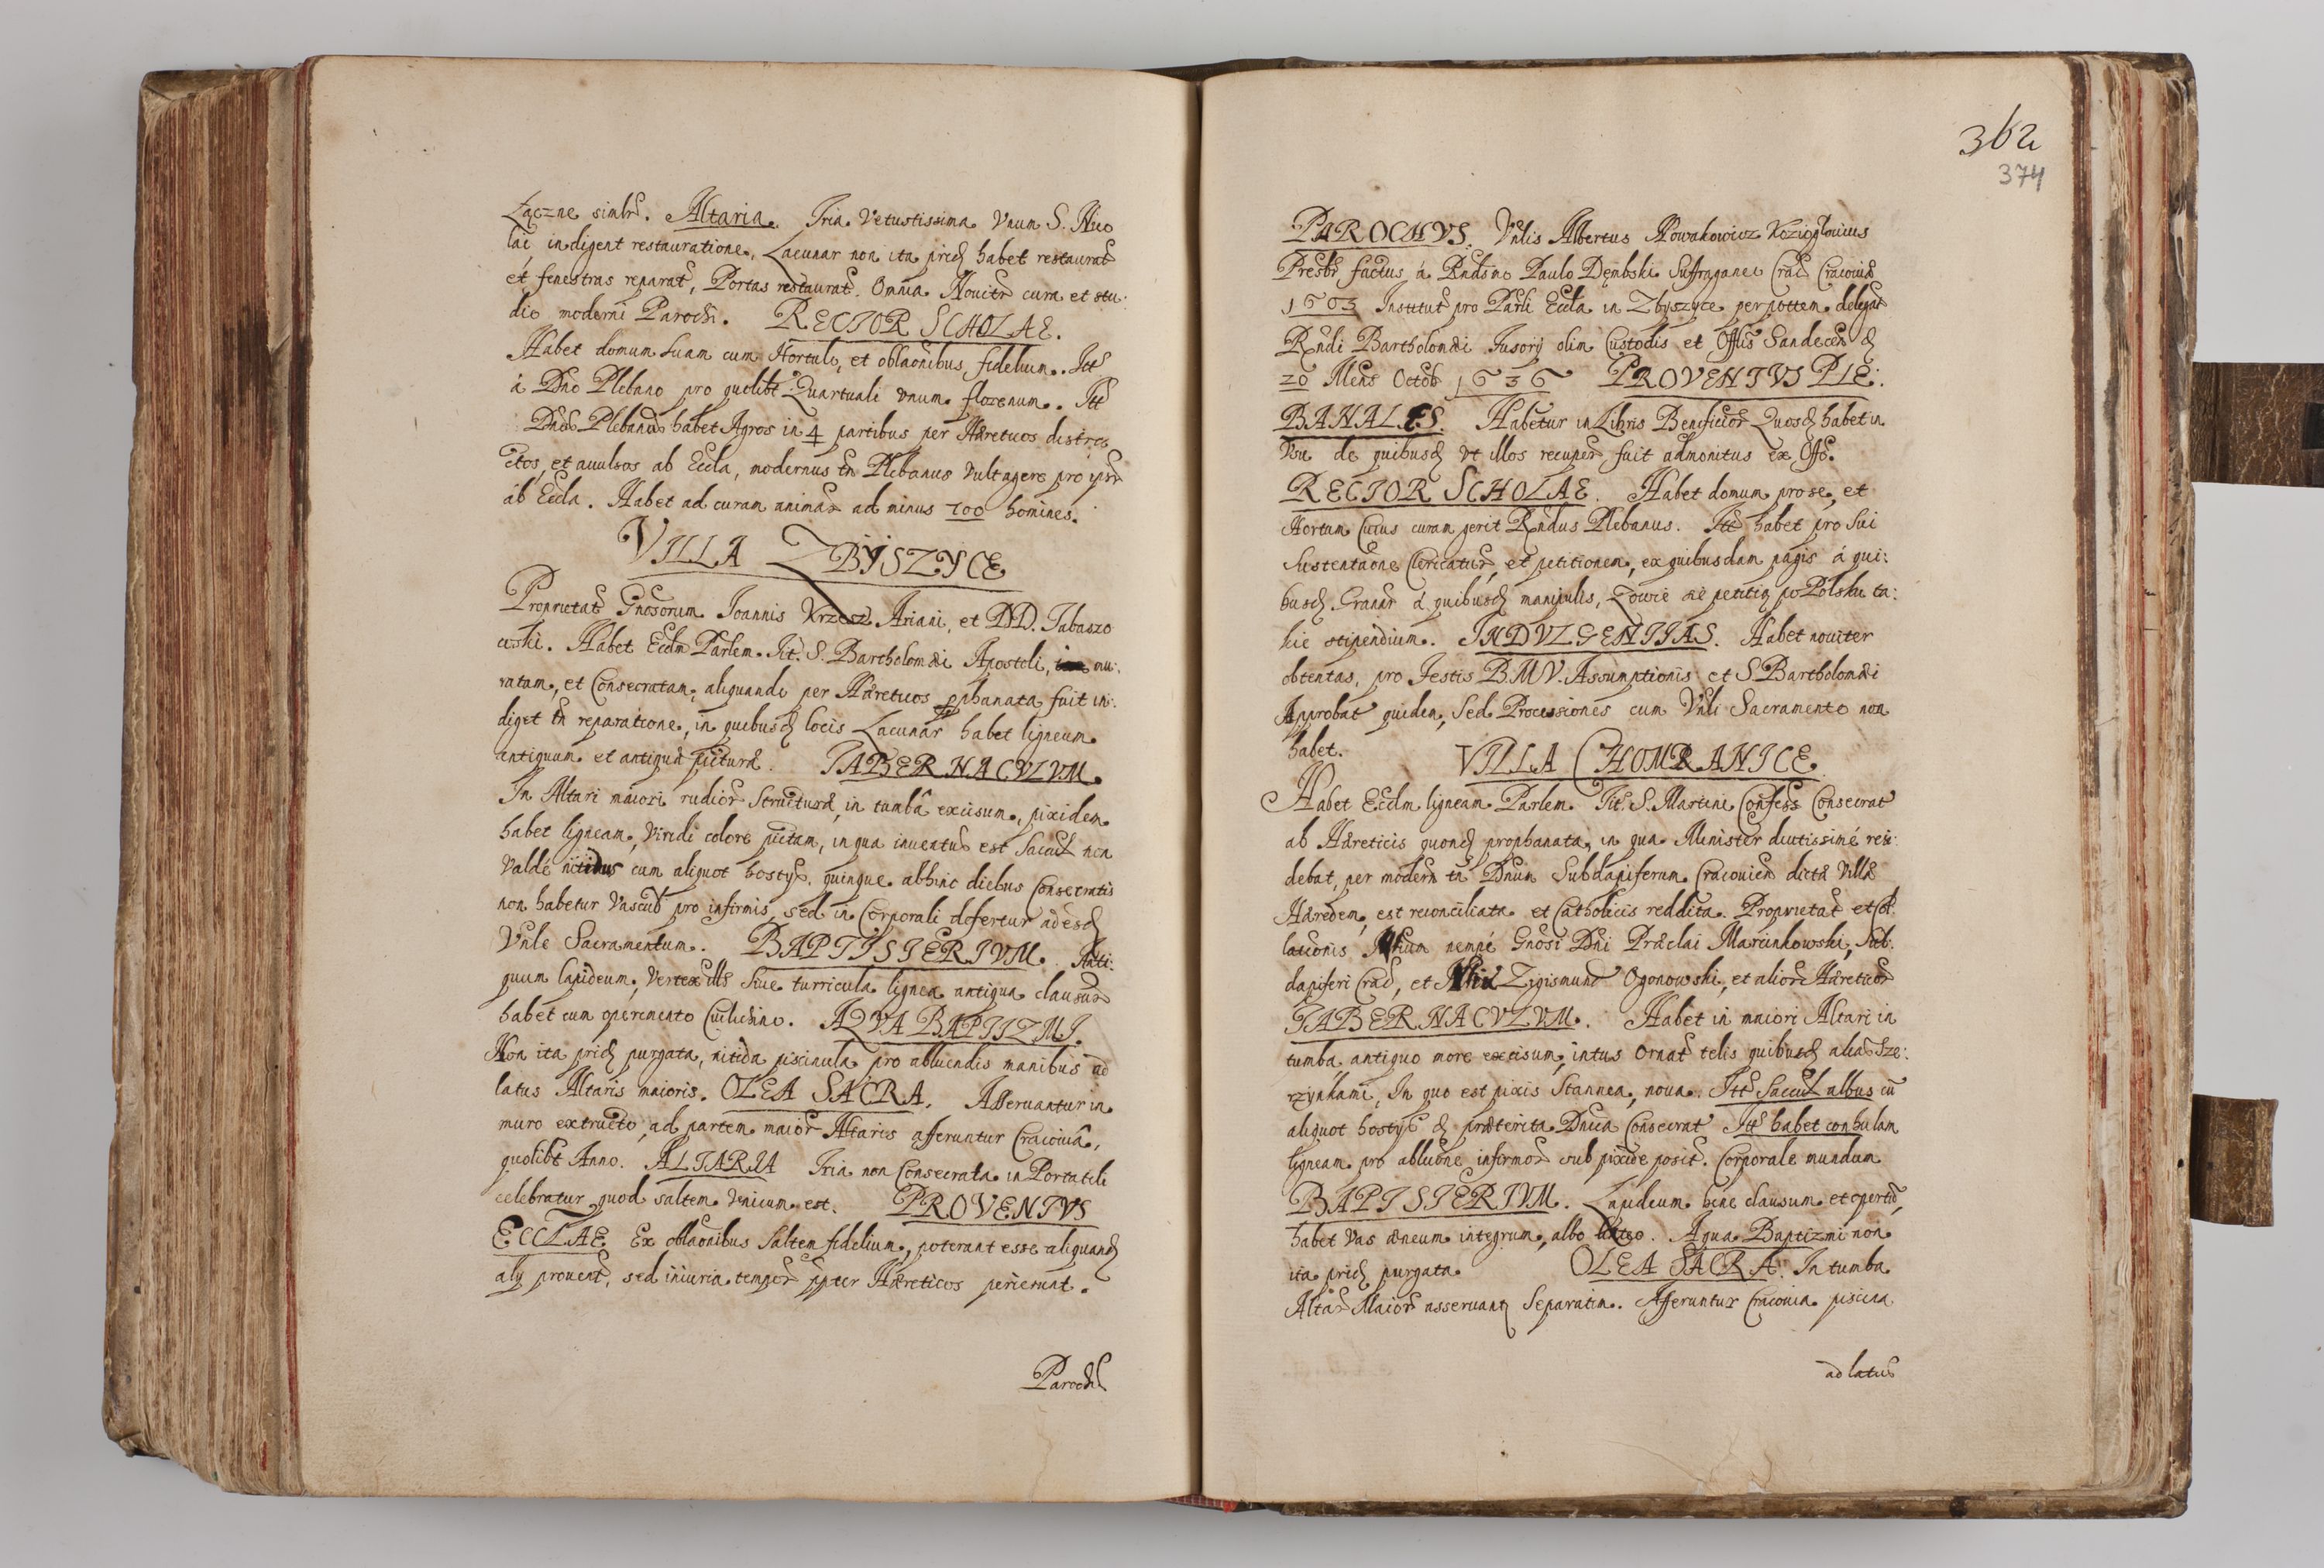 Łączne simłr. Altaria. Tria Vetustissima Vnum S. Nico
lai indigent restauratione, Lacunar non ita prid habet restaurat
et fenestras reparat, Portas restaurat. Omnia Nouitr cura et stu:
dio moderni Parochi. RECTOR SCHOLAE.
Habet domum suam cum Hortulo, et oblaonibus fidelium. Itt
á Dno Plebano pro quolibt Quartuali vnum florenum. Itt
Dnus Plebanus habet Agros in 4 partibus per Hæreticos distra
ctos, et auulsos ab Eccla, modernus tn Plebanus Vult agere pro
ab Eccla. Habet ad curam animar ad minus 700 homines.
VILLA ZBYSZYCE
Proprietat Gnosorum Joannis Krzesz Ariani, et DD. Tabaszo
wski. Habet Eccłm Parlem. Tit. S. Bartholomæi Apostoli, mu:
ratam, et Consecratam, aliquando per Hæreticos pphanata fuit in:
diget tn reparatione, in quibusd locis Lacunar habet ligneum
antiquum et antiqua pictura. TABERNACVLVM.
In Altari maiori rudior Structura, in tumbâ excisum, pixidem
habet ligneam, viridi colore pictam, in qua inuentus est Saccul non
Valdé nitidus cum aliquot hostijs. quinque abhinc diebus Consecratis
non habetur Vascul pro infirmis, sed in Corporali defertur ad
Vnle Sacramentum. BAPTISTERIVM. Anti:
quum lapideum, Vertex ills siue turricula lignea antiqua clausur
habet cum operimento Cuilichino. AQVA BAPTIZMI.
Non ita prid purgata, nitida piscinula pro abluendis manibus ad
latus Altaris maioris. OLEA SACRA. Asseruantur in
muro extructo, ad partem maior Altaris afferuntur Cracouiâ,
quolibt Anno. ALTARIA Tria non Consecrata in Portatili
celebratur quod saltem vnicum est. PROVENTVS
ECCLAE Ex oblaonibus saltem fidelium, poterant esse aliquand
alij prouent, sed iniuria tempor ppter Hæreticos perierunt.
Parochs
362
374
PAROCHVS. Vnlis Albertus Nowakowicz Kozioglouius
Presbr factus á Rndsmo Paulo Dęmbski Suffraganeo Crac Cracouiæ
1603 Institut pro Parli Eccla in Zbyszyce per pottem delegat
Rndi Bartholomæi Fusorij olim Custodis et Offlis Sandecen d
20 Mens Octob 1636 PROVENTVS PLE:
BANALES. Habetur in Libris Beneficior Quosd habet in
Vsu de quibusd vt illos recuper fuit admonitus ex Offo.
RECTOR SCHOLAE. Habet domum pro se, et
Hortum Cuius curam gerit Rndus Plebanus. Itt habet pro sui
Sustentaone Clericatur, et petitionem, ex quibusdam pagis á qui:
busd Granar á quibusd manipulis, Zowie sie petitią po Polsku ta:
kie stipendium. INDVLGENTIAS. Habet nouiter
obtentas, pro Festis B.M.V. Assumptionis et S Bartholomæi
Approbat quidem, Sed Processiones cum Vnli Sacramento non
habet. VILLA CHOMRANICE
Habet Eccłm ligneam Parlem. Tit. S. Martini Confess Consecrat
ab Hæreticis quond prophanata, in qua Minister diutissimé resi:
debat, per modern tn Dnum Subdapiferum Cracouien dicta Villæ
Hæredem, est reconciliata et Catholicis reddita. Proprietat et Col:
lationis nempé Gnosi Dni Præclai Marcinkowski, Sub:
dapiferi Crac, et Zigismund Ogonowski, et alior Hæreticor
TABERNACVLVM. Habet in maiori Altari in
tumba antiquo more excisum, intus Ornat telis quibusd alias Sze:
rzynkami, In quo est pixis Stannea, noua. Itt Saccul albus cū
aliquot hostijs d præterita Dnica Consecrat Itt habet conhulam
ligneam pro abluone infirmor sub pixide posit. Corporale mundum
BAPTISTERIVM. Lapideum bene clausum et opertū,
habet Vas æneum integrum, albo linteo. Aqua Baptizmi non
ita prid purgata OLEA SACRA. In tumba
Altar Maior asseruant Separatim. Afferuntur Cracouia piscina
ad latus